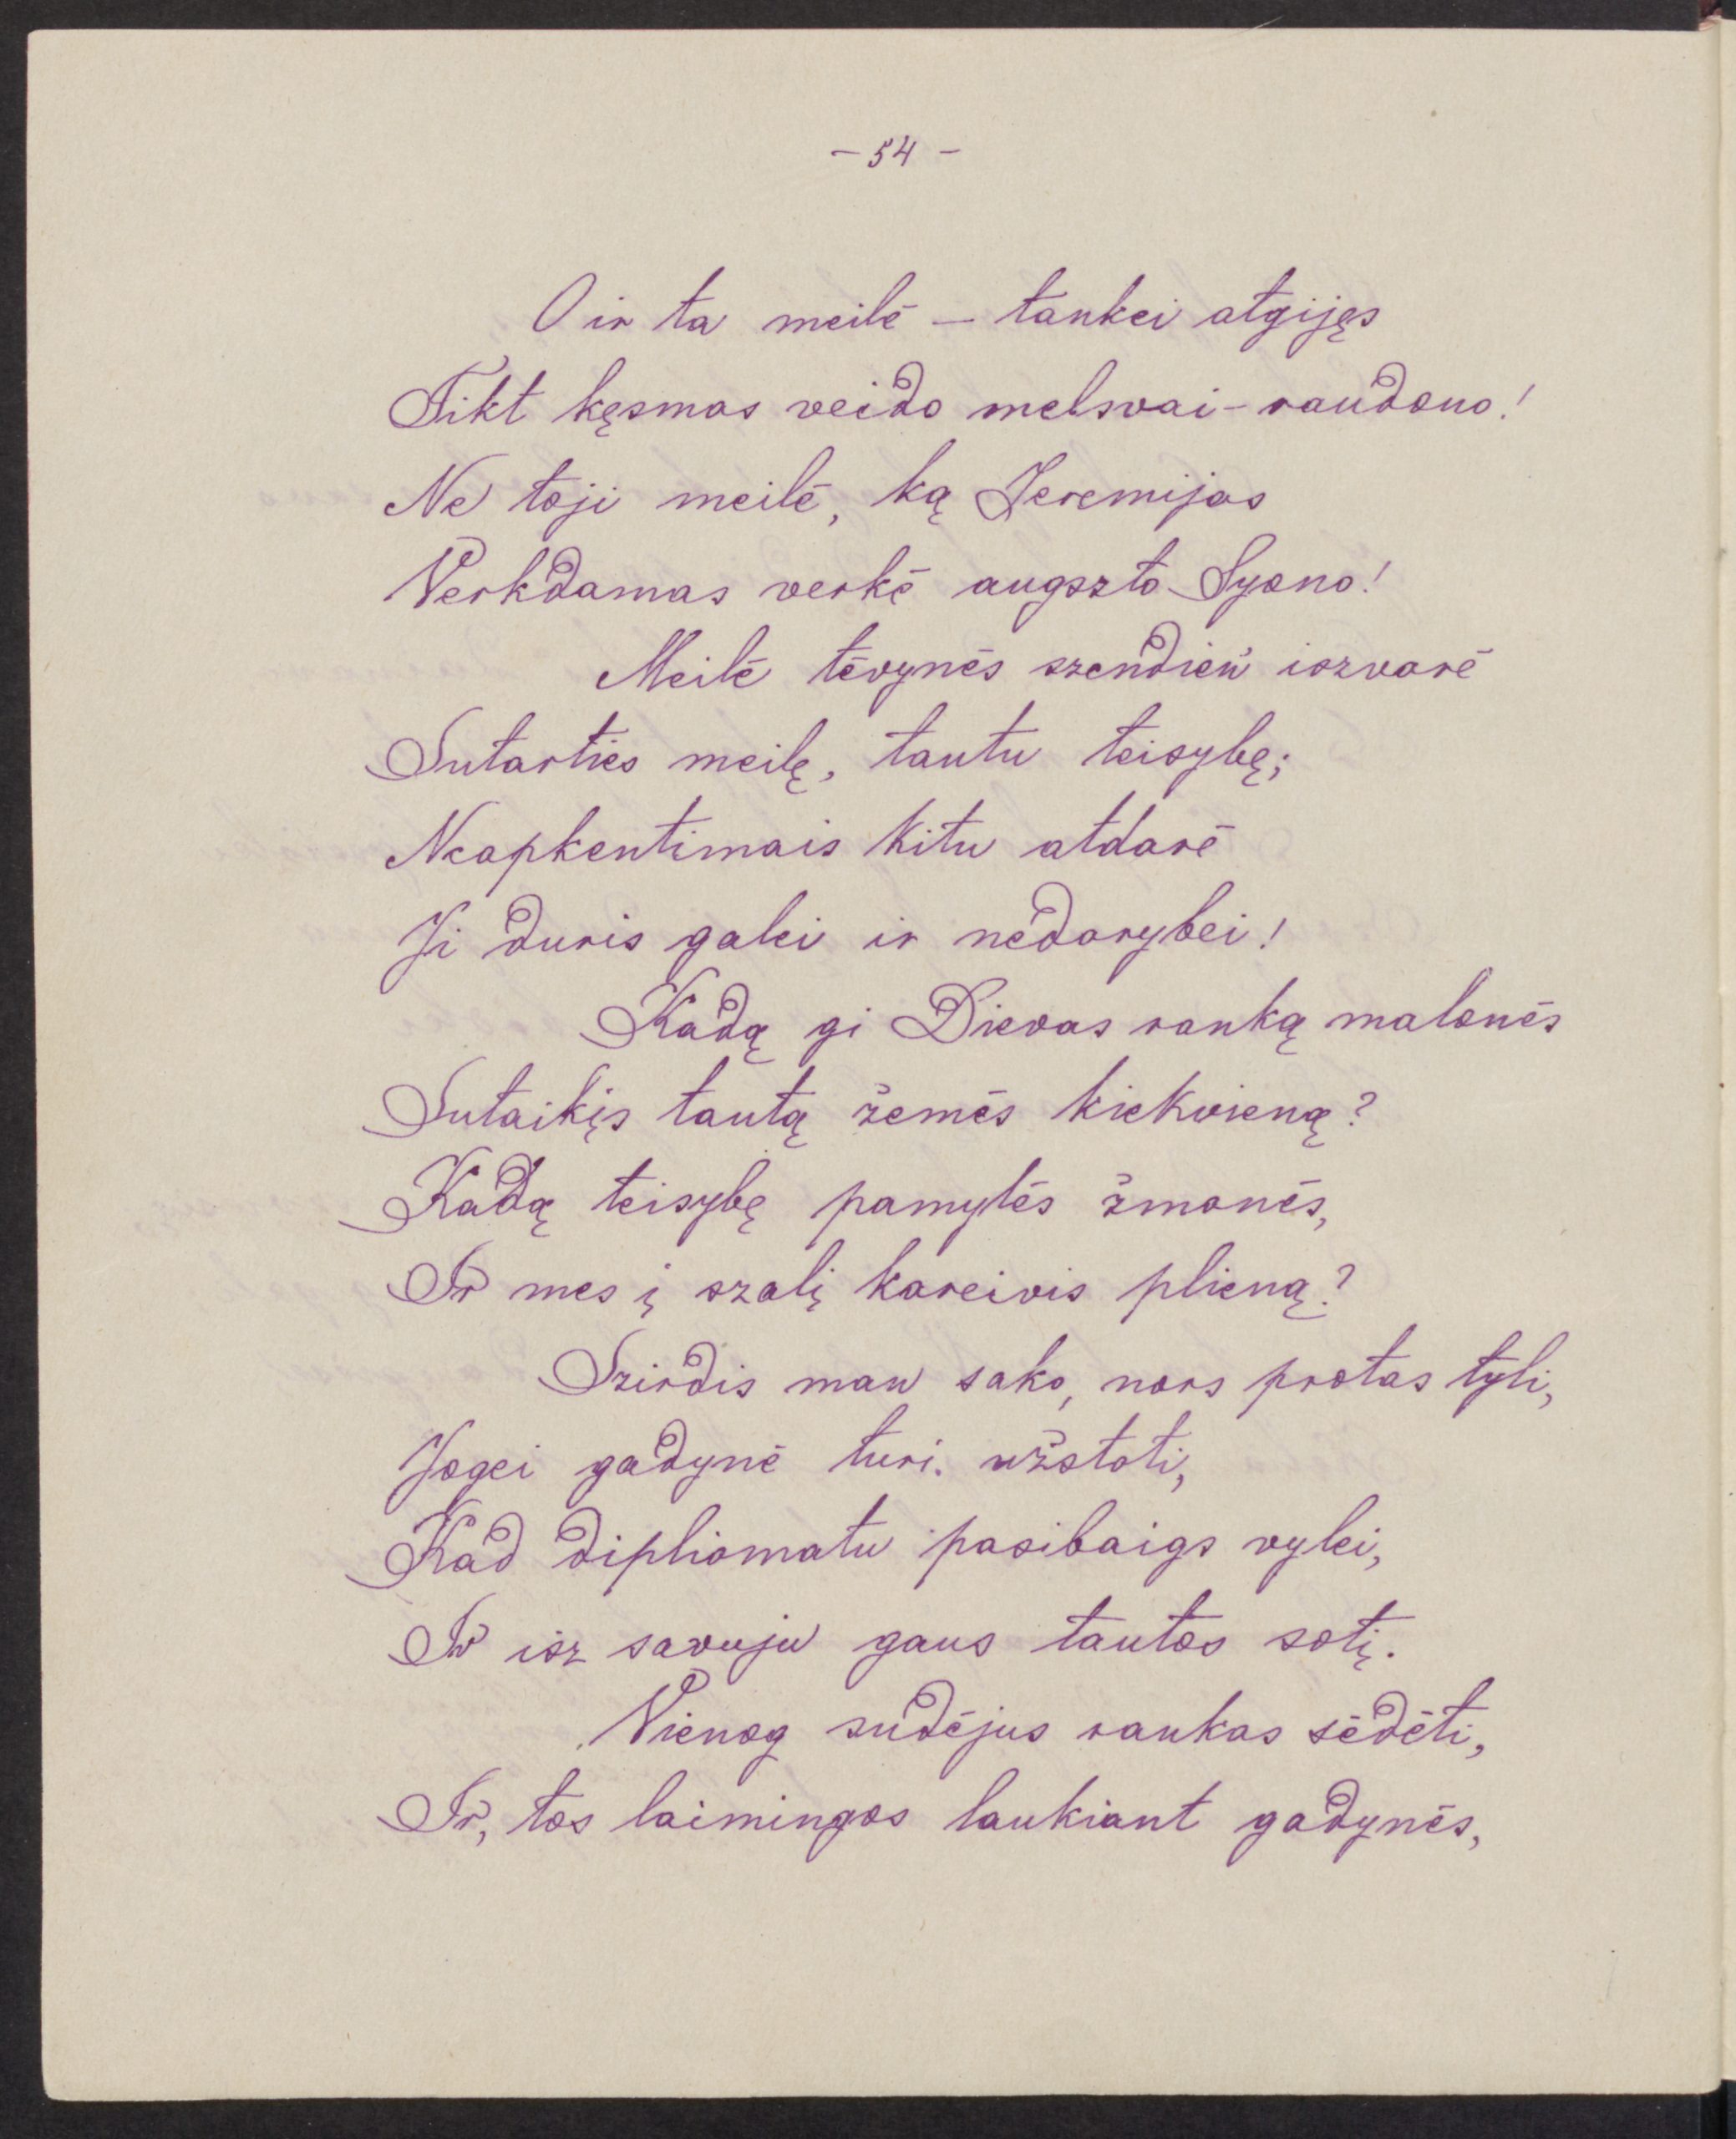 - 54 -
O ir ta meilė – tankei atgijęs
Tikt kęsmas veido melsvai-raudono!
Ne toji meilė, ką Jeremijas
Verkdamas verkė augszto Syono!
Meilė tėvynės szendien iszvarė
Sutarties meilę, tautu teisybę;
Neapkentimais kitu atdarė
Ji duris galei ir nedorybei!
Kadą gi Dievas ranką malonės
Sutaikįs tautą žemės kiekvieną?
Kadą teisybę pamylės žmonės,
Ir mes į szalį kareivis plieną?
Szirdis man sako, nors protas tyli,
Jogei gadynė turi užstoti,
Kad dipliomatu pasibaigs vylei,
Ir isz savuju gaus tautos sotį.
Vienog sudėjus rankas sėdėti,
Ir, tos laimingos laukiant gadynės,